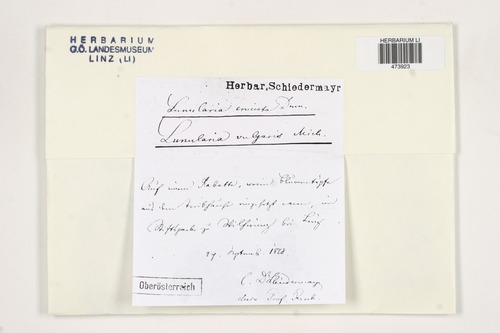 HERBARIUM
O.Ö. LANDESMUSEUM
LINZ (LI)
HERBARIUM LI
473923
Herbar, Schiedermayr
Lunularia Dum.
Lunularia vulgaris Mich.
Auf einem Rabatte, worin Blumentöpfe
aus dem eingesetzt waren, im
Stiftsparke zu Wilhering bei Linz
29. Septemb.
C. Schiedermayr
Oberösterreich